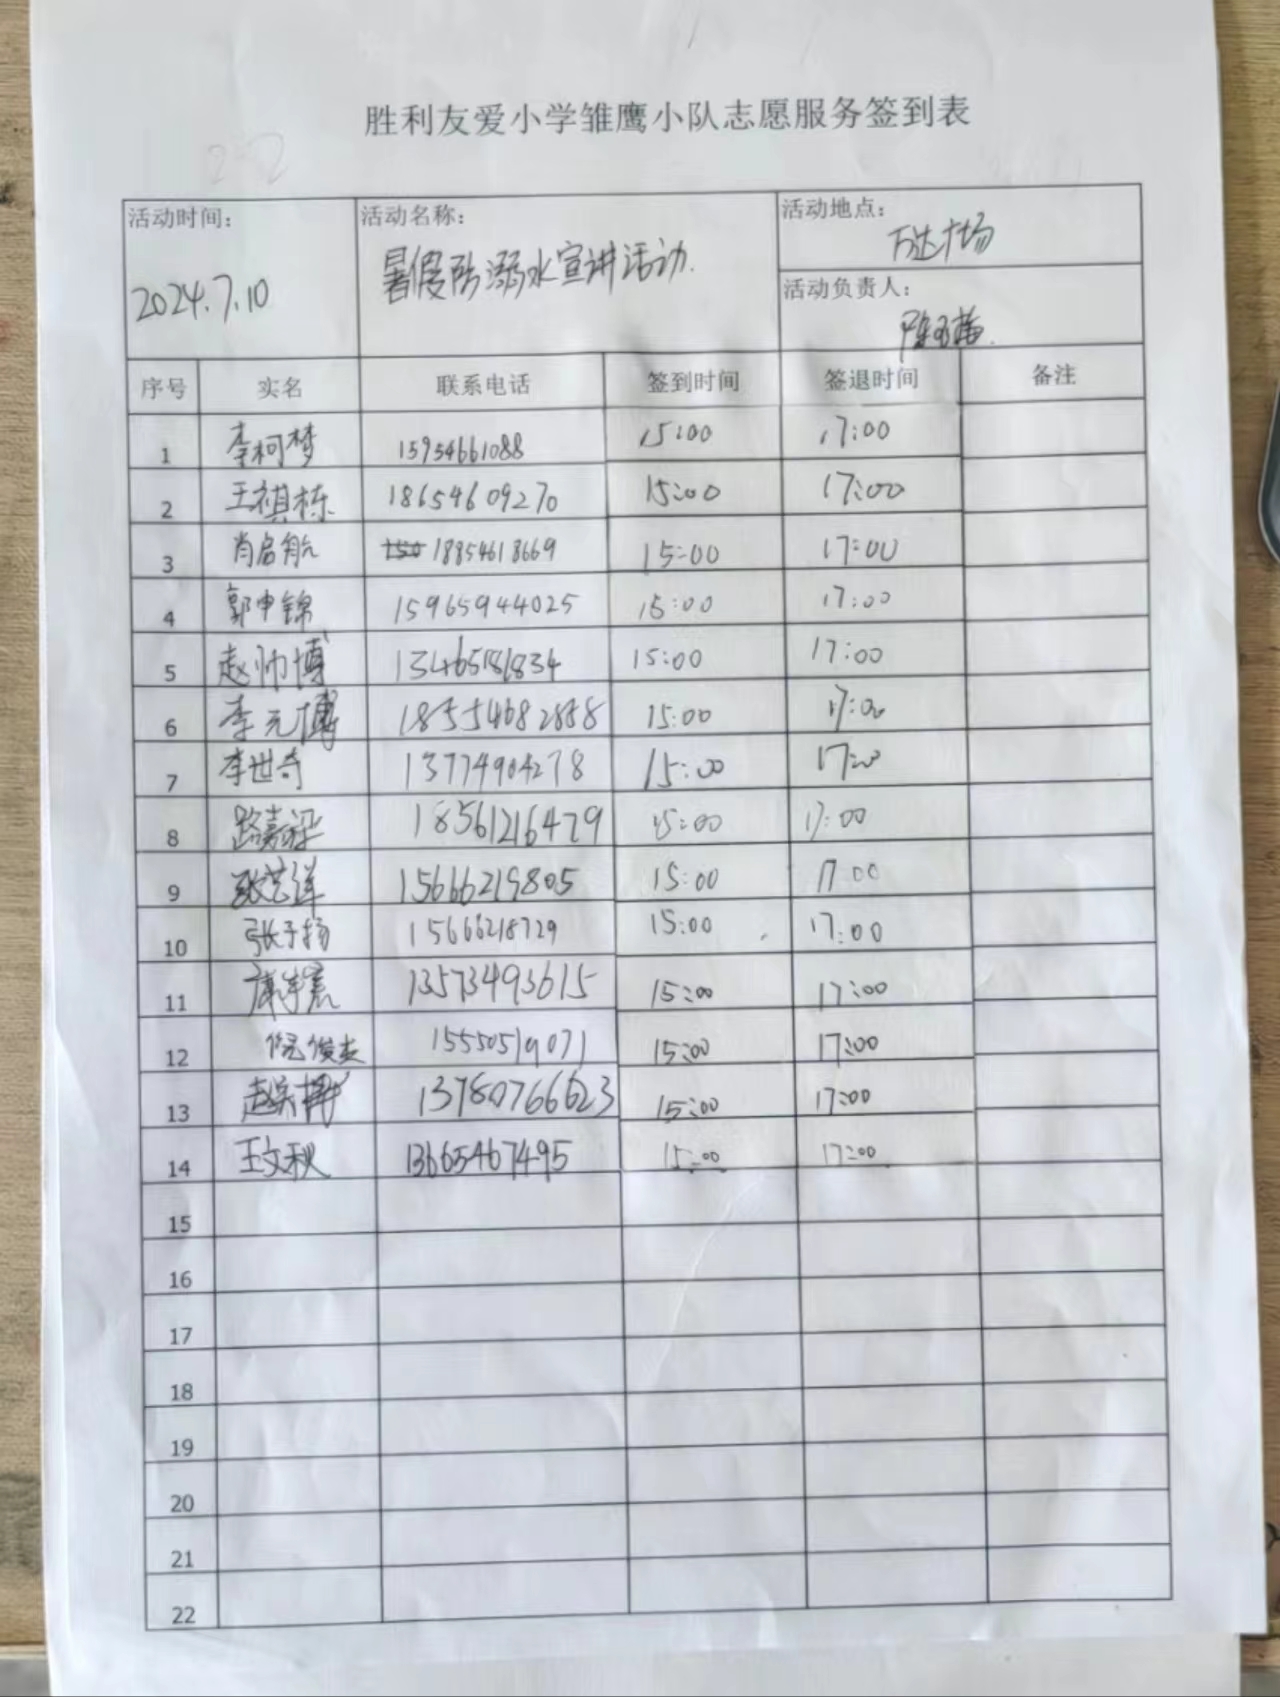 胜利友爱小学雏鹰小队志愿服务签到表
活动时间：
2024.7.10
活动名称：
暑假防溺水宣讲活动.
活动地点：
万达广场
活动负责人：
序号 实名 联系电话 签到时间 签退时间 备注
1 李柯梦 15954661088 15:00 17:00
2 王祺栋 18654609270 15:00 17:00
3 肖启航 18854613669 15:00 17:00
4 郭申锦 15965944025 15:00 17:00
5 赵帅博 13465181834 15:00 17:00
6 李元博 18554682858 15:00 17:00
7 李世奇 13774904278 15:00 17:00
8 路嘉 18561216479 15:00 17:00
9 张艺 15666219805 15:00 17:00
10 张子扬 15666218729 15:00 17:00
11 康宇宸 13573493615 15:00 17:00
12 倪俊杰 15550519071 15:00 17:00
13 赵 13780766623 15:00 17:00
14 王文秋 13665467495 15:00 17:00
15
16
17
18
19
20
21
22